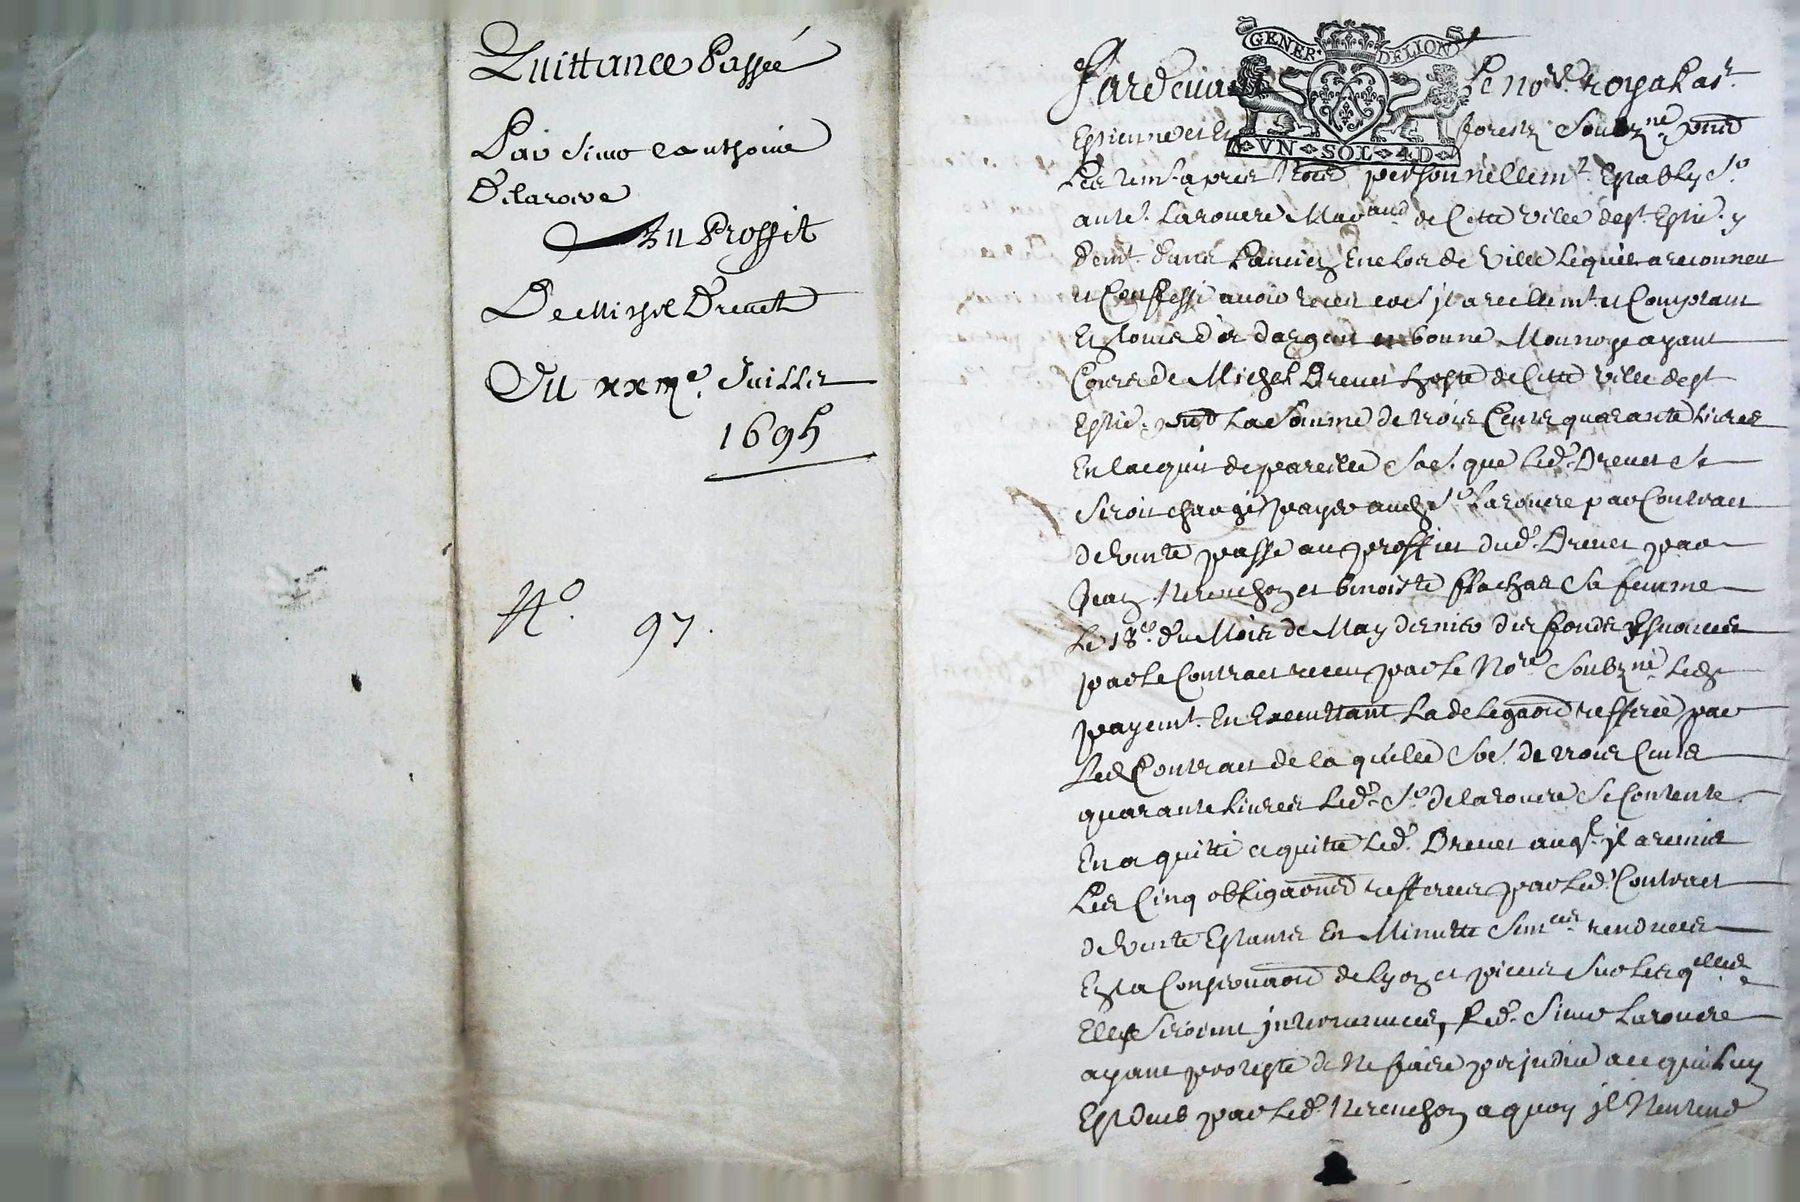 Quittance Passée
Par Sieur Anthoine
Delaroere
Au Proffit
De Michel Dreuet
Du xxme. Juillet
1695
No. 97.
GENER. DELION
VN SOL 4D
Pardeuant Le nore. royal a st.
Estienne et En forestz Soubzné. pnt
Les tems. apres només personnellemt. Estably Sr.
ante. Larouere Marand de Cette ville de st. Estie. y
demt. dans Lancien Enclos de ville Lequel a reconneu
et Confessé auoir receu cy reellemt. et Comptant
En louis d'or d'argent et bonne Monnoye ayant
Cours de Michel Dreuet hoste de Cette ville de st
Estie. pnt La Somme de trois Cents quarante Liures
En lacquit de pareille Soe. que Led. Dreuet Se
Seroit chargé payer audit Sr. Larouere par Contract
de Vente passé au proffict dud. Dreuet par
Jean Nerenchon et benoiste flachat Sa femme
Le 18e. du Mois de May dernier des fonds Esnoncés
par le Contract receu par le Nore. Soubzné. Led.
payemt. En Executtant La delegaon refferée par
Led. Contract de laquelle Soe. de trois Cents
quarante Liures Led. Sr. delarouere Se Contente
En a quitté et quitte Led. Dreuet auql. il a remis
Les Cinq obligaons refferées par Led. Contract
de Vente Estants En Minutte Sentces. rendues
En la Conseruaon de Lyon et pieces Sur Lesqlles
Elles Seroient interuenues, Led. Sieur Larouere
ayant protesté de Ne faire prejudice a ce qui Luy
Est deub par Led. Nerenchon a quoy il N'entend